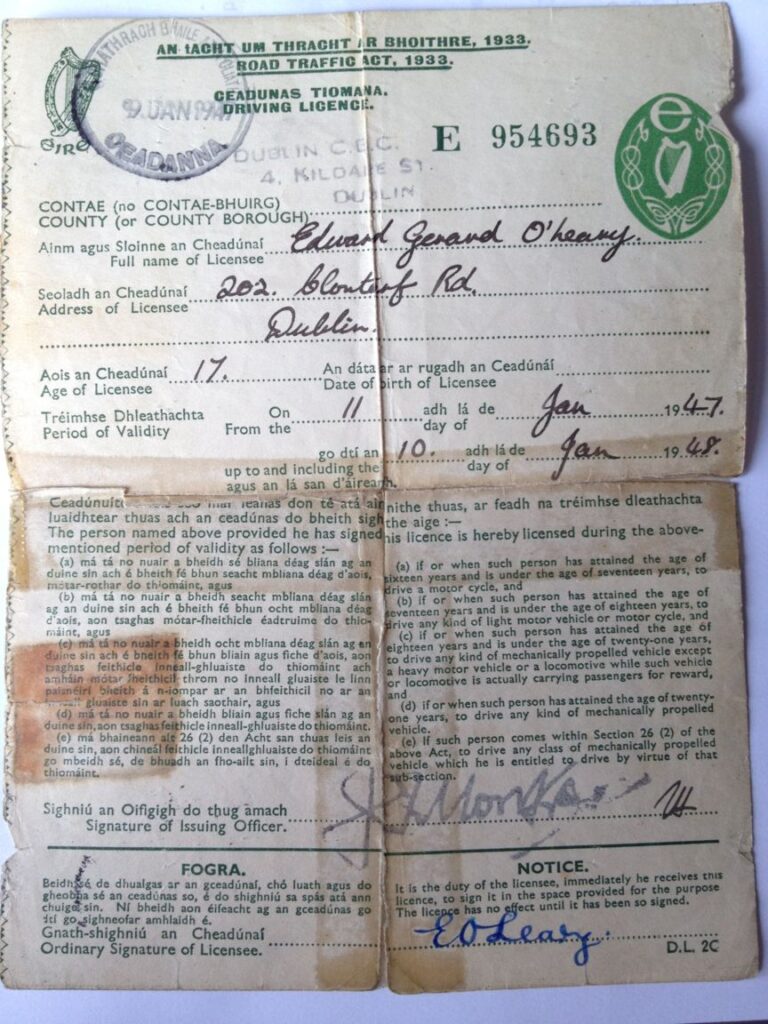 AN tACHT UM THRACHT AR BHOITHRE, 1933.
ROAD TRAFFIC ACT, 1933.
CEADUNAS TIOMANA.
DRIVING LICENCE.
ÉIRE
9 JAN 1947
CEADANNA
e
E 954693
DUBLIN C.B.C.
4, KILDARE ST
DUBLIN
CONTAE (no CONTAE-BHUIRG)
COUNTY (or COUNTY BOROUGH)
Ainm agus Sloinne an Cheadúnaí
Full name of Licensee
Edward Gerard O'Leary.
Seoladh an Cheadúnaí
Address of Licensee
202. Clontarf Rd.
Dublin.
Aois an Cheadúnaí
Age of Licensee
17.
An dáta ar ar rugadh an Ceadúnaí
Date of birth of Licensee
Tréimhse Dhleathachta
Period of Validity
On 11 adh lá de Jan 1947.
From the day of
go dtí an 10. adh lá de Jan 1948.
up to and including the day of
agus an lá san d'áireamh.
luaidhtear thuas ach an ceadúnas do bheith sighnithe aige :—
nithe thuas, ar feadh na tréimhse dleathachta
The person named above provided he has signed this licence is hereby licensed during the above-
mentioned period of validity as follows :—
(a) má tá no nuair a bheidh sé bliana déag slán ag an
duine sin ach é bheith fé bhun seacht mbliana déag d'aois,
mótar-rothar do thiomáint, agus
(b) má tá no nuair a bheidh seacht mbliana déag slán
ag an duine sin ach é bheith fé bhun ocht mbliana déag
d'aois, aon tsaghas mótar-fheithicle éadtruime do thio-
máint, agus
(c) má tá no nuair a bheidh ocht mbliana déag slán ag an
duine sin ach é bheith fé bhun bliain agus fiche d'aois, aon
tsaghas feithicle inneall-ghluaiste do thiomáint ach
amháin mótar fheithicil throm no inneall gluaiste le linn
paisnéirí bheith á n-iompar ar an bhfeithicil no ar an
inneall gluaiste sin ar luach saothair, agus
(d) má tá no nuair a bheidh bliain agus fiche slán ag an
duine sin, aon tsaghas feithicle inneall-ghluaiste do thiomáint.
(e) má bhaineann alt 26 (2) den Acht san thuas leis an
duine sin, aon chineál feithicle inneallghluaiste do thiomáint
go mbeidh sé, de bhuadh an fho-ailt sin, i dteideal é do
thiomáint.
(a) if or when such person has attained the age of
sixteen years and is under the age of seventeen years, to
drive a motor cycle, and
(b) if or when such person has attained the age of
seventeen years and is under the age of eighteen years, to
drive any kind of light motor vehicle or motor cycle, and
(c) if or when such person has attained the age of
eighteen years and is under the age of twenty-one years,
to drive any kind of mechanically propelled vehicle except
a heavy motor vehicle or a locomotive while such vehicle
or locomotive is actually carrying passengers for reward,
and
(d) if or when such person has attained the age of twenty-
one years, to drive any kind of mechanically propelled
vehicle.
(e) If such person comes within Section 26 (2) of the
above Act, to drive any class of mechanically propelled
vehicle which he is entitled to drive by virtue of that
sub-section.
Sighniú an Oifigigh do thug amach
Signature of Issuing Officer.
FOGRA.
Beidh sé de dhualgas ar an gceadúnaí, chó luath agus do
gheobha sé an ceadúnas so, é do shighniú sa spás atá ann
chuige sin. Ní bheidh aon éifeacht ag an gceadúnas go
dtí go sighneofar amhlaidh é.
Gnath-shighniú an Cheadúnaí
Ordinary Signature of Licensee.
NOTICE.
It is the duty of the licensee, immediately he receives this
licence, to sign it in the space provided for the purpose
The licence has no effect until it has been so signed.
E O Leary.
D.L. 2C